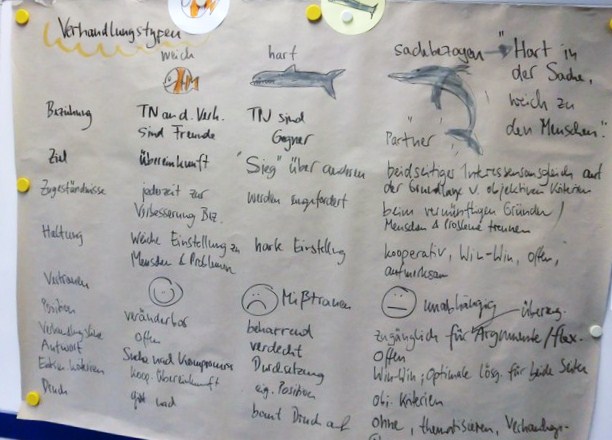 Verhandlungstypen
weich hart sachbezogen – "Hart in
der Sache,
weich zu
den Menschen."
Beziehung TN an d. Verh. TN sind "Partner"
sind Freunde Gegner
Ziel Übereinkunft "Sieg" über anderen beidseitiges Interessensausgleich auf
der Grundlage v. objektiven Kriterien
Zugeständnisse jederzeit zur werden eingefordert beim vernünftigen Gründen /
Verbesserung Bez. Menschen & Probleme trennen
Haltung weiche Einstellung zu harte Einstellung kooperativ, Win-Win, offen,
Menschen & Problemen aufmerksam
Vertrauen Mißtrauen unabhängig
Position veränderbar beharrend zugänglich für Argumente/flex.
offen verdeckt offen
Antwort Suche nach Kompromiss Durchsetzung Win-Win; Optimale Lösg. für beide Seiten
Übereinkunft eig. Position obj. Kriterien
Druck gibt nach baut Druck auf ohne, thematisieren,